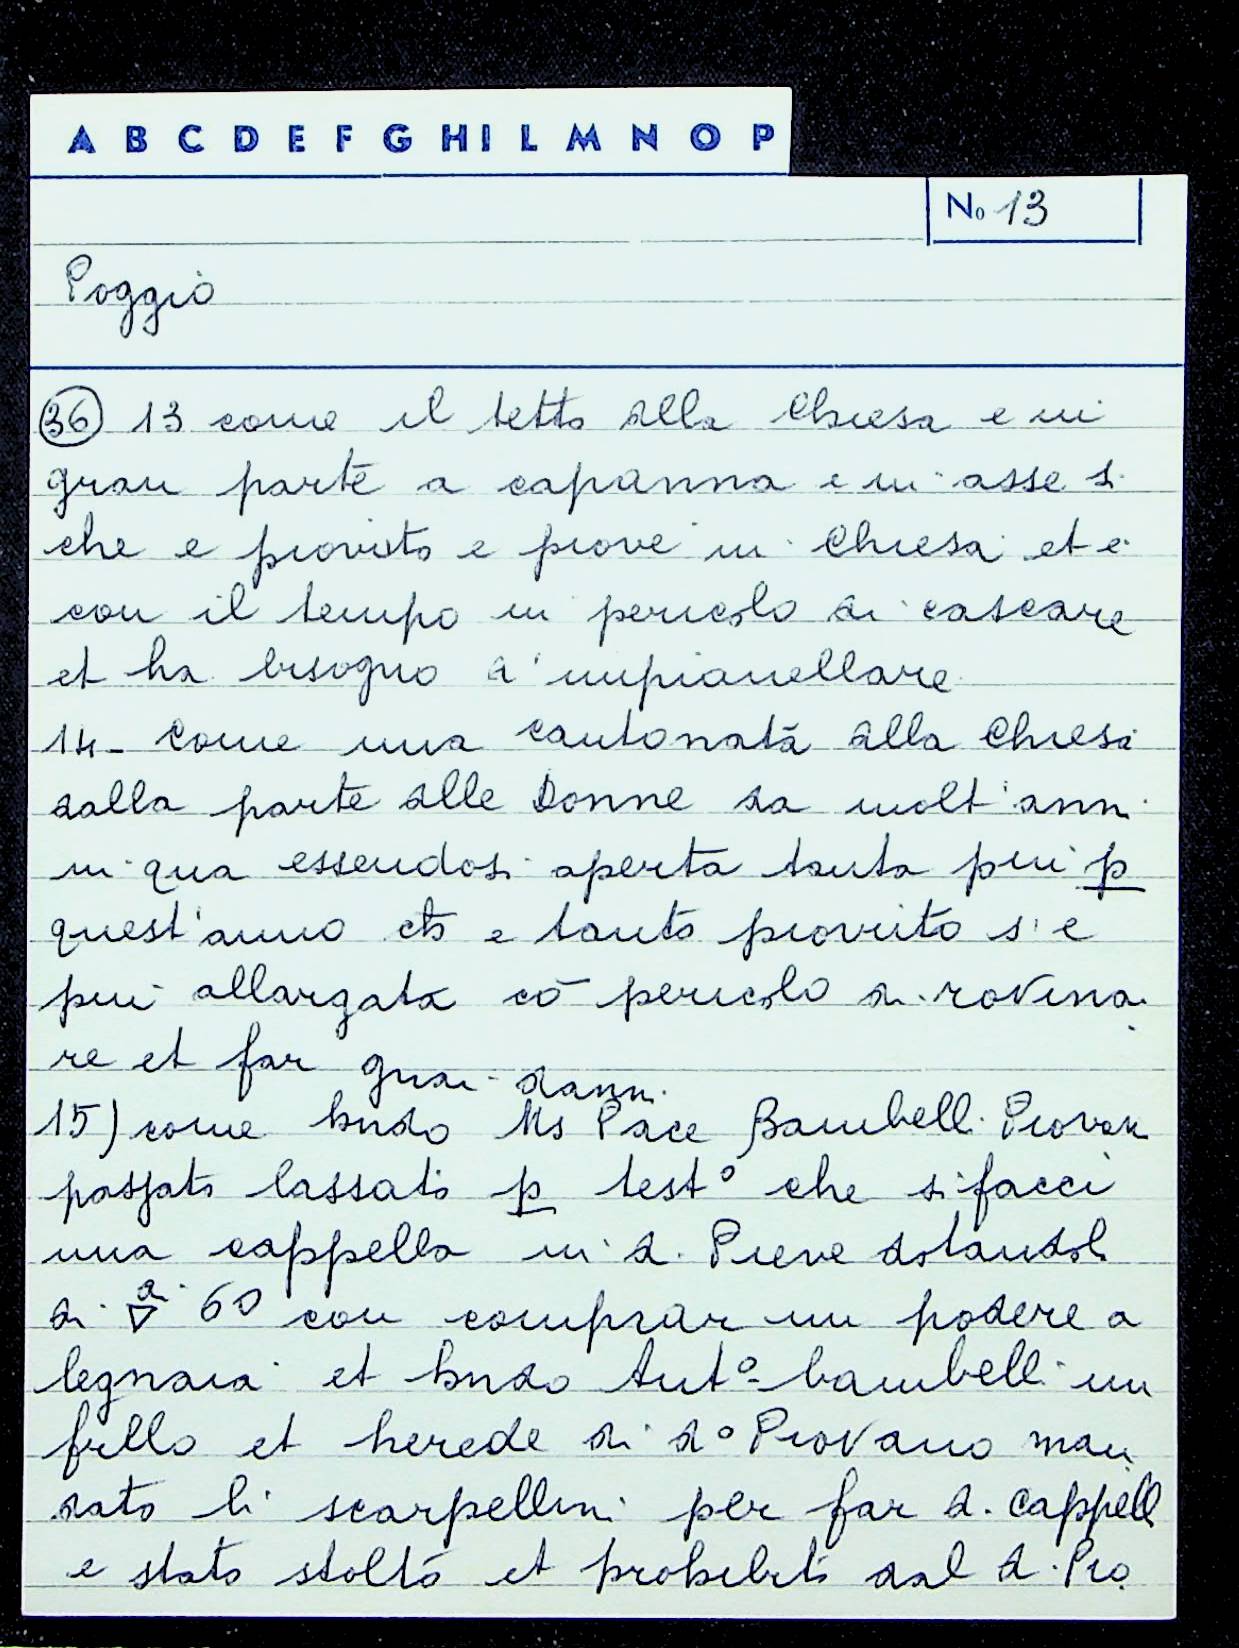 A B C D E F G H I L M N O P
No 13
Poggio
36 13 come il tetto della Chiesa e in
gran parte a capanna e in asse si
che e piovuto e piove in Chiesa et e
con il tempo in pericolo di cascare
et ha bisogno d'impianellare
14- Come una cantonata della Chiesa
dalla parte delle Donne da molt'anni
in qua essendosi aperta tanta più p
quest'anno ch e tanto piovuto s'e
più allargata cō pericolo di rovina
re et far gran danni
15) come hndo Ms Pace Bambelli Piovan
passato lassato p test° che si facci
una cappella in d. Pieve dotandol
di ▽di 60 con comprar un podere a
legnaia et hndo Ant° bambelli un
frllo et herede di d° Piovano man
dato li scarpellini per far d. Cappell
e stato stolto et prohibito dal d. Pio